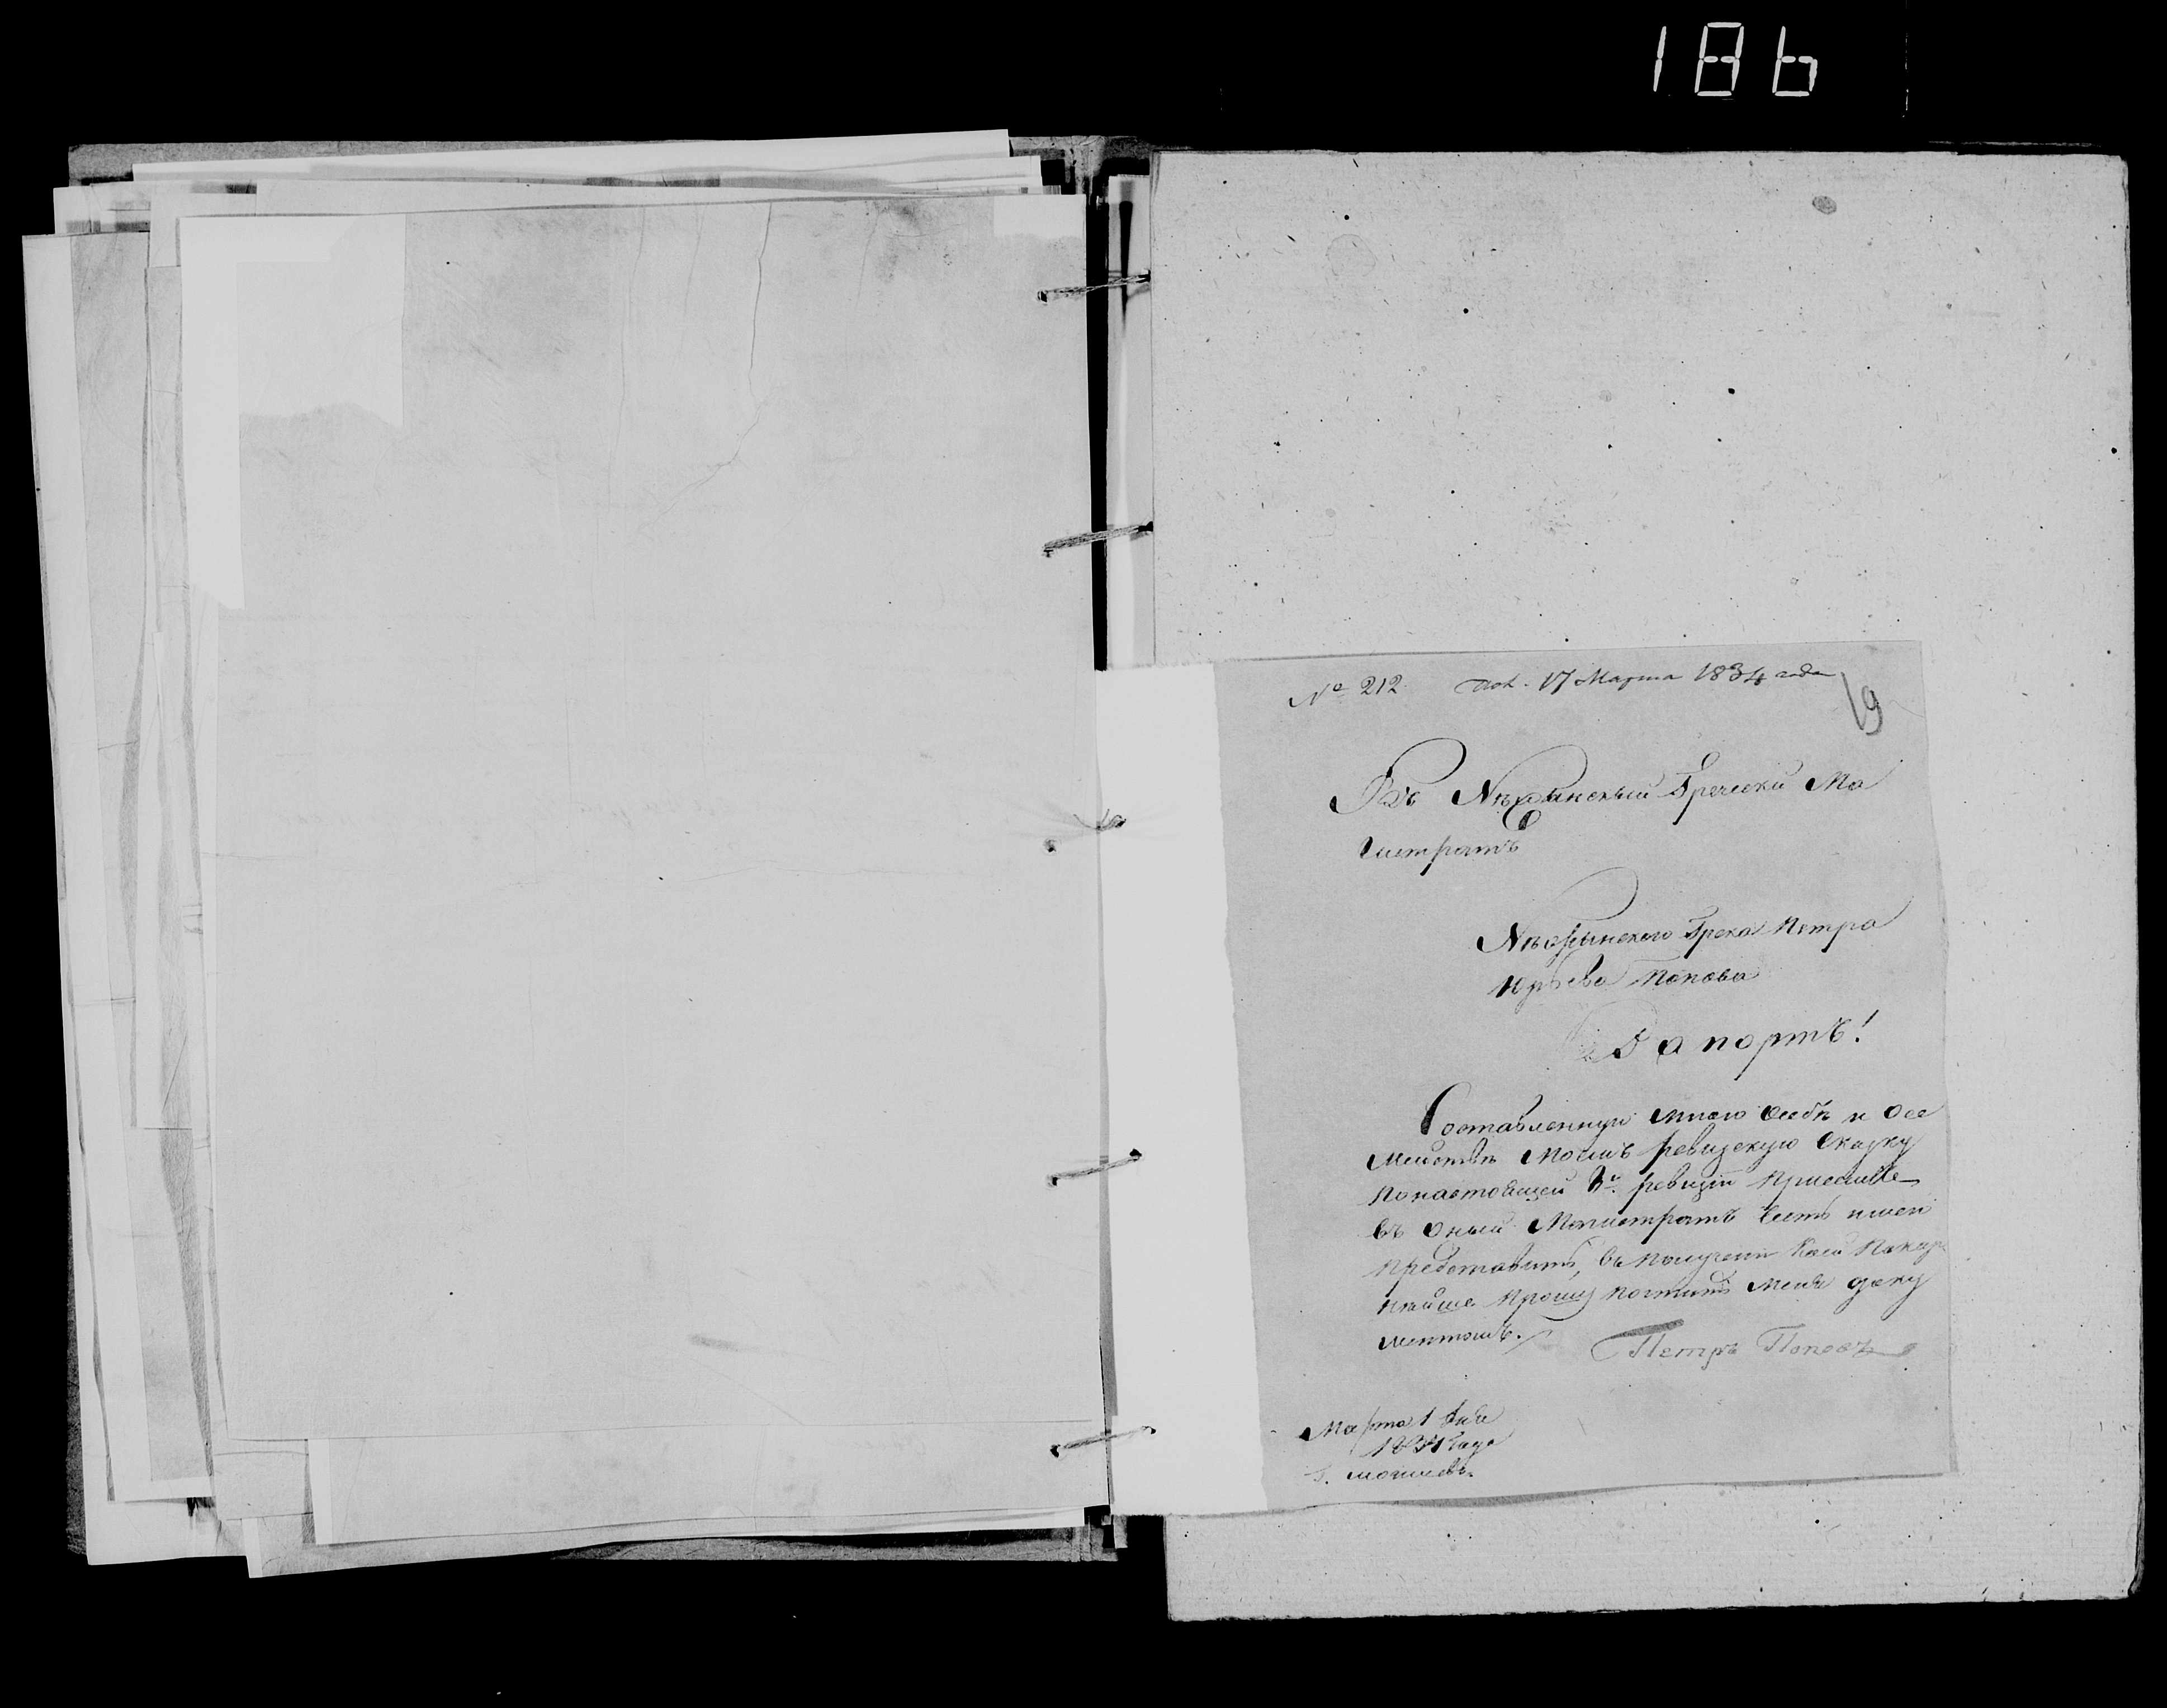 186
№ 212. Пол. 17 Марта 1834 года
19
Въ Нѣжинскый Гречески Ма
гистратъ
Нѣжынского Грека Петра
Юрьева Попова
Рапортъ!
Составленную мною осебѣ и осе
мействѣ моемъ ревизскую сказку
понастоящей 8й ревизіи присемже
въ оный Магистратъ честь имею
представить, въ получени коей покор
нѣйше прошу почтить меня доку
ментомъ.
Петръ Поповъ
Марта 1 дня
1834 года
г. Могилевъ